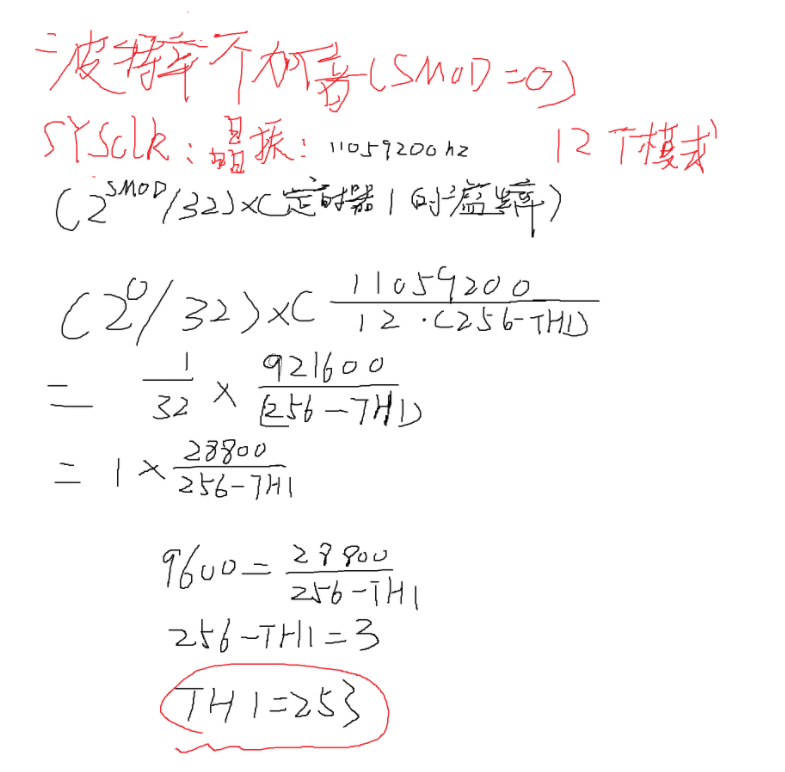 波特率不加倍(SMOD=0)
SYSclk:晶振:11059200hz 12T模式
(2^SMOD/32)×(定时器1的溢出率)
(2^0/32)×( 11059200 / 12·(256-TH1)
= 1/32 × 921600/(256-TH1)
= 1× 28800/256-TH1
9600= 28800/256-TH1
256-TH1=3
TH1=253